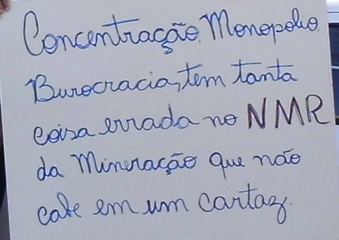 Concentração, Monopolio,
Burocracia, tem tanta
coisa errada no NMR
da Mineração que não
cabe em um cartaz.